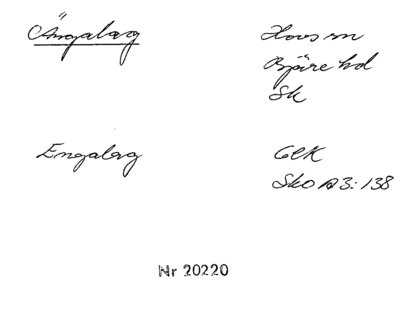 Ängalag
Hovs sn
Bjäre hd
Sk
Engalag
GEK
Sko A3:138
Nr 20220